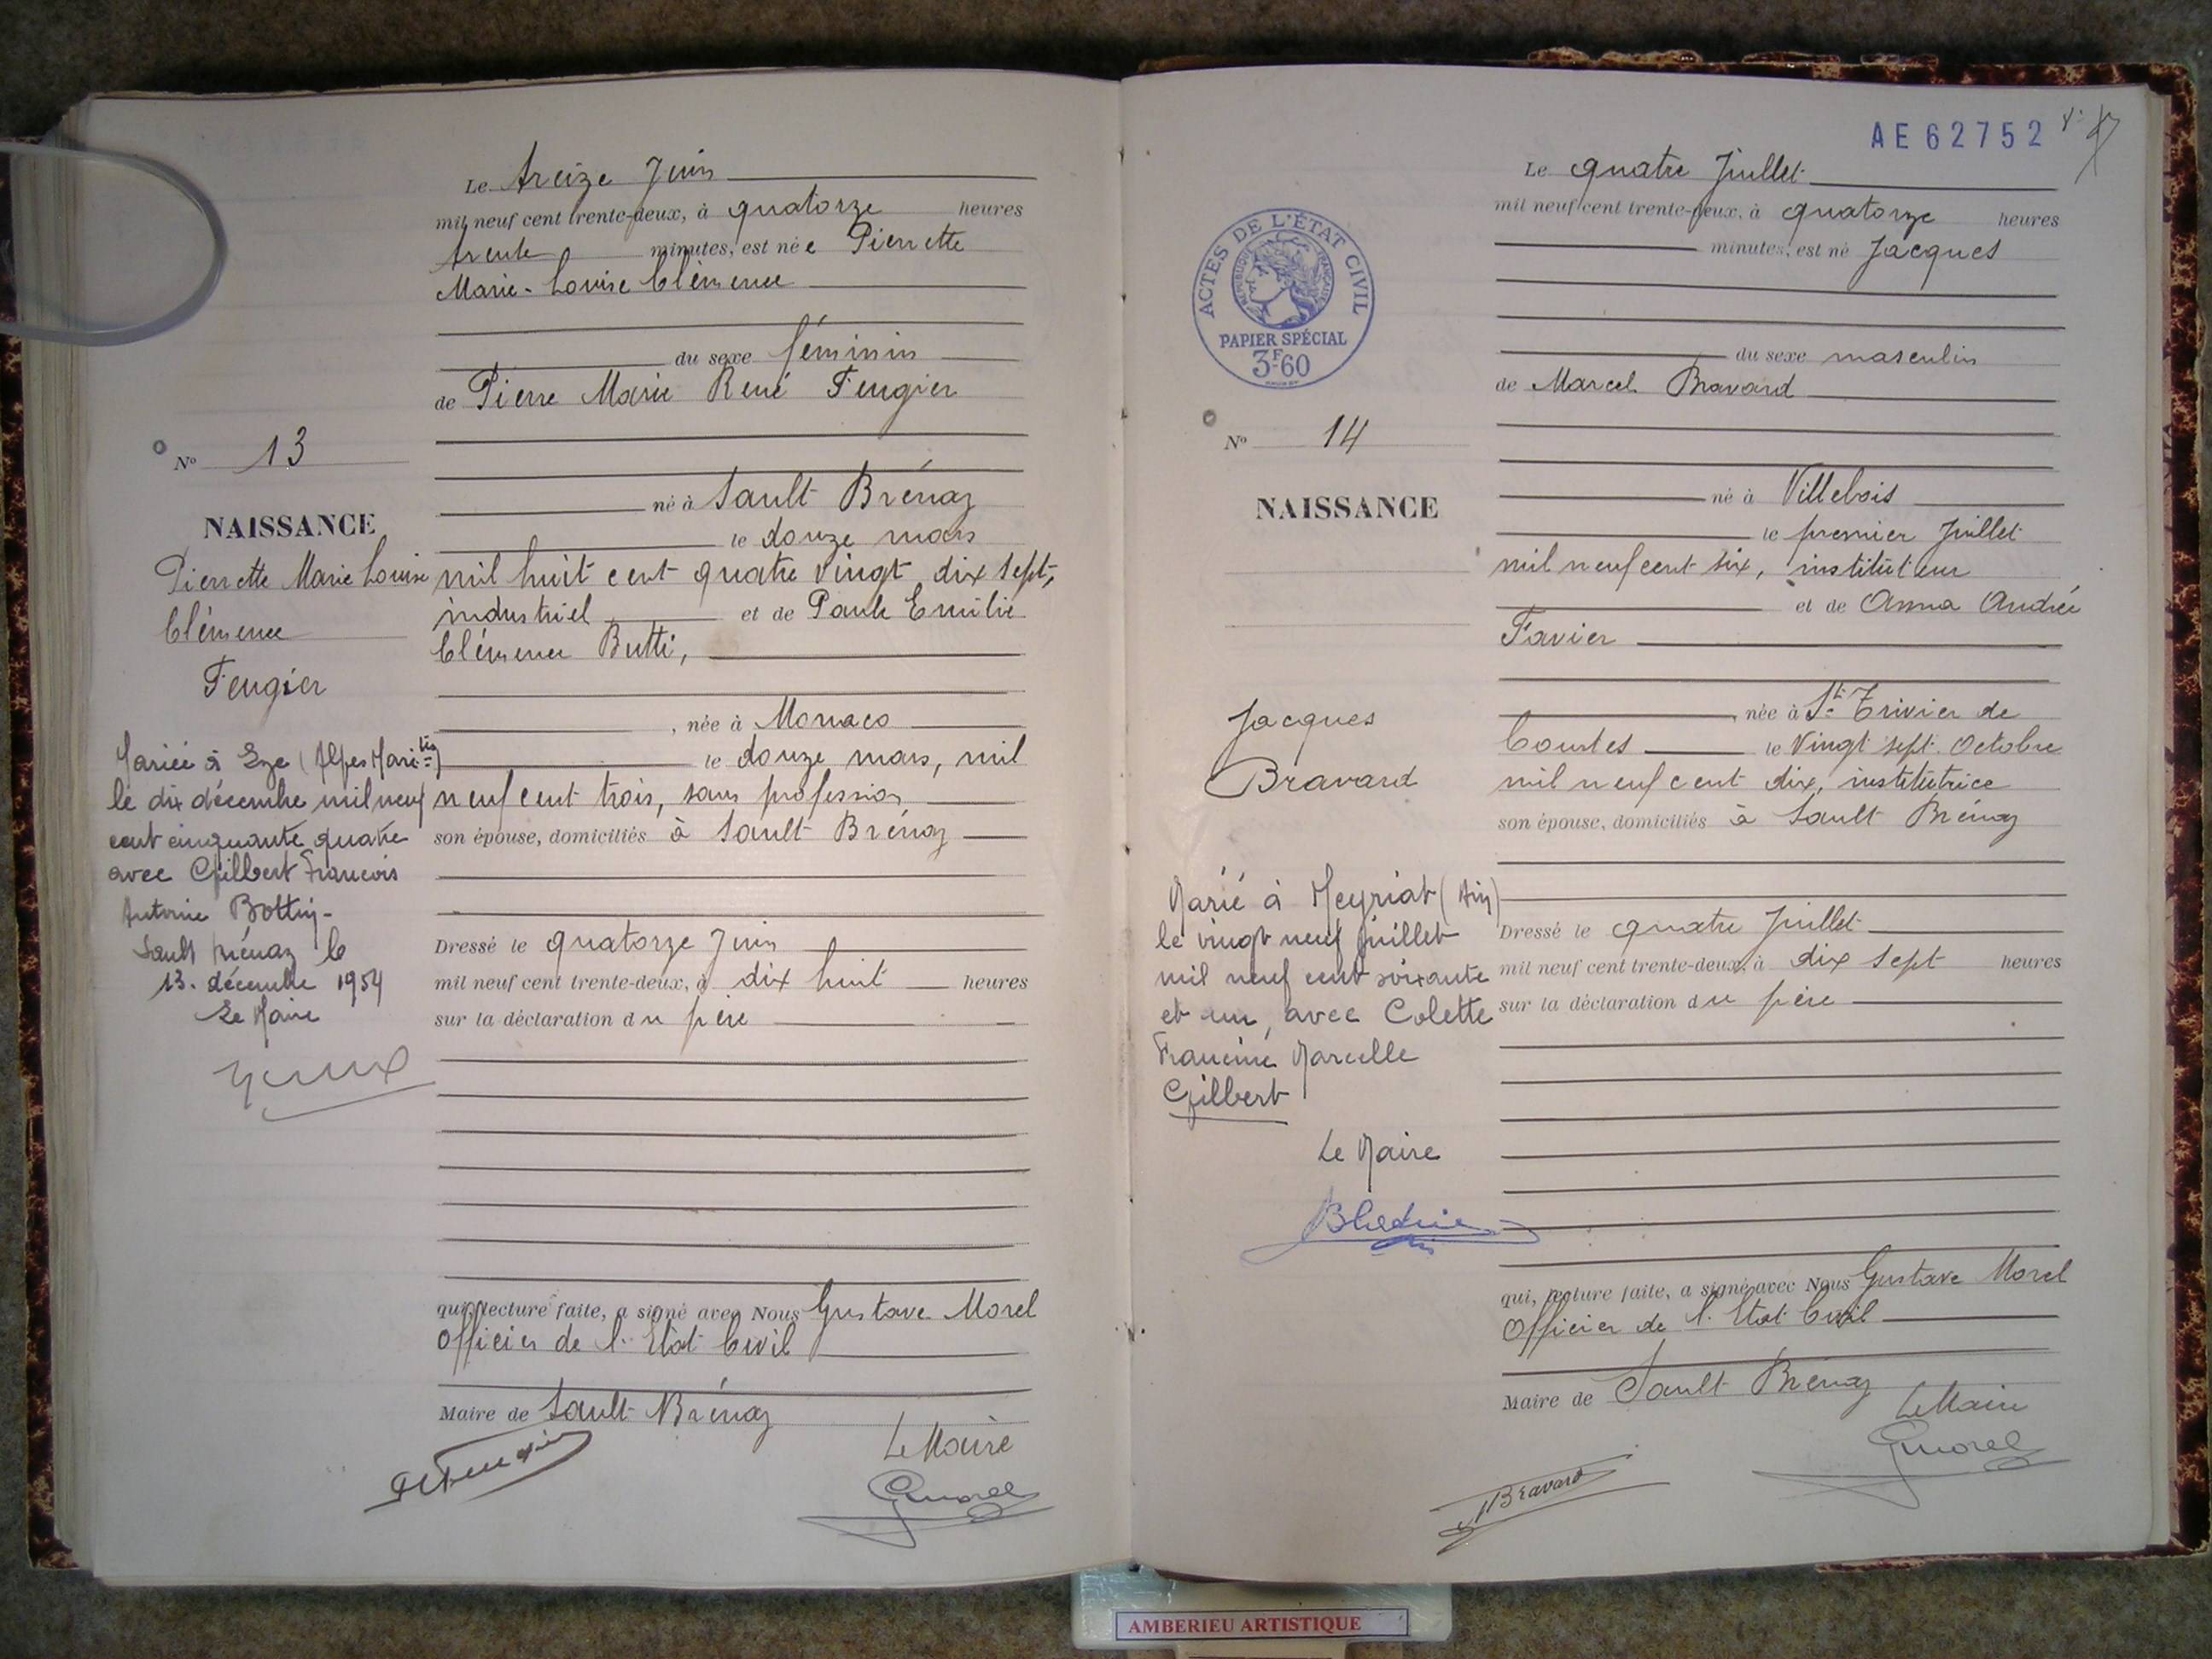 Le treize Juin
mil neuf cent trente-deux, à quatorze heures
trente minutes, est née Pierrette
Marie-Louise Clémence
du sexe féminin
de Pierre Marie René Feugier
né à Sault Brénaz
le douze mars
mil huit cent quatre vingt dix sept,
industriel et de Paule Emilie
Clémence Butti,
née à Monaco
le douze mars, mil
neuf cent trois, sans profession
son épouse, domiciliés à Sault Brénaz
Dressé le quatorze Juin
mil neuf cent trente-deux, à dix huit heures
sur la déclaration du père
qui, lecture faite, a signé avec Nous Gustave Morel
Officier de l'Etat Civil
Maire de Sault Brénaz
Le Maire
GMorel
N° 13
NAISSANCE
Pierrette Marie Louise
Clémence
Feugier
Mariée à Eze (Alpes Marit.mes)
le dix décembre mil neuf
cent cinquante quatre
avec Gilbert François
Antoine Bottin-
Sault Brénaz le
13. décembre 1954
Le Maire
AE62752
Le quatre Juillet
mil neuf cent trente-deux, à quatorze heures
minutes, est né Jacques
du sexe masculin
de Marcel Bravard
né à Villebois
le premier Juillet
mil neuf cent six, instituteur
et de Anna Andrée
Favier
née à St Trivier de
Courtes le vingt sept Octobre
mil neuf cent dix, institutrice
son épouse, domiciliés à Sault Brénaz
Dressé le quatre Juillet
mil neuf cent trente-deux, à dix sept heures
sur la déclaration du père
qui, lecture faite, a signé avec Nous Gustave Morel
Officier de l'Etat Civil
Maire de Sault Brénaz
Le Maire
GMorel
MBravard
ACTES DE L'ÉTAT CIVIL
RÉPUBLIQUE FRANÇAISE
PAPIER SPÉCIAL
3F60
N° 14
NAISSANCE
Jacques
Bravard
Marié à Meyriat (Ain)
le vingt neuf juillet
mil neuf cent soixante
et un, avec Colette
Francine Marcelle
Gilbert
Le Maire
AMBERIEU ARTISTIQUE